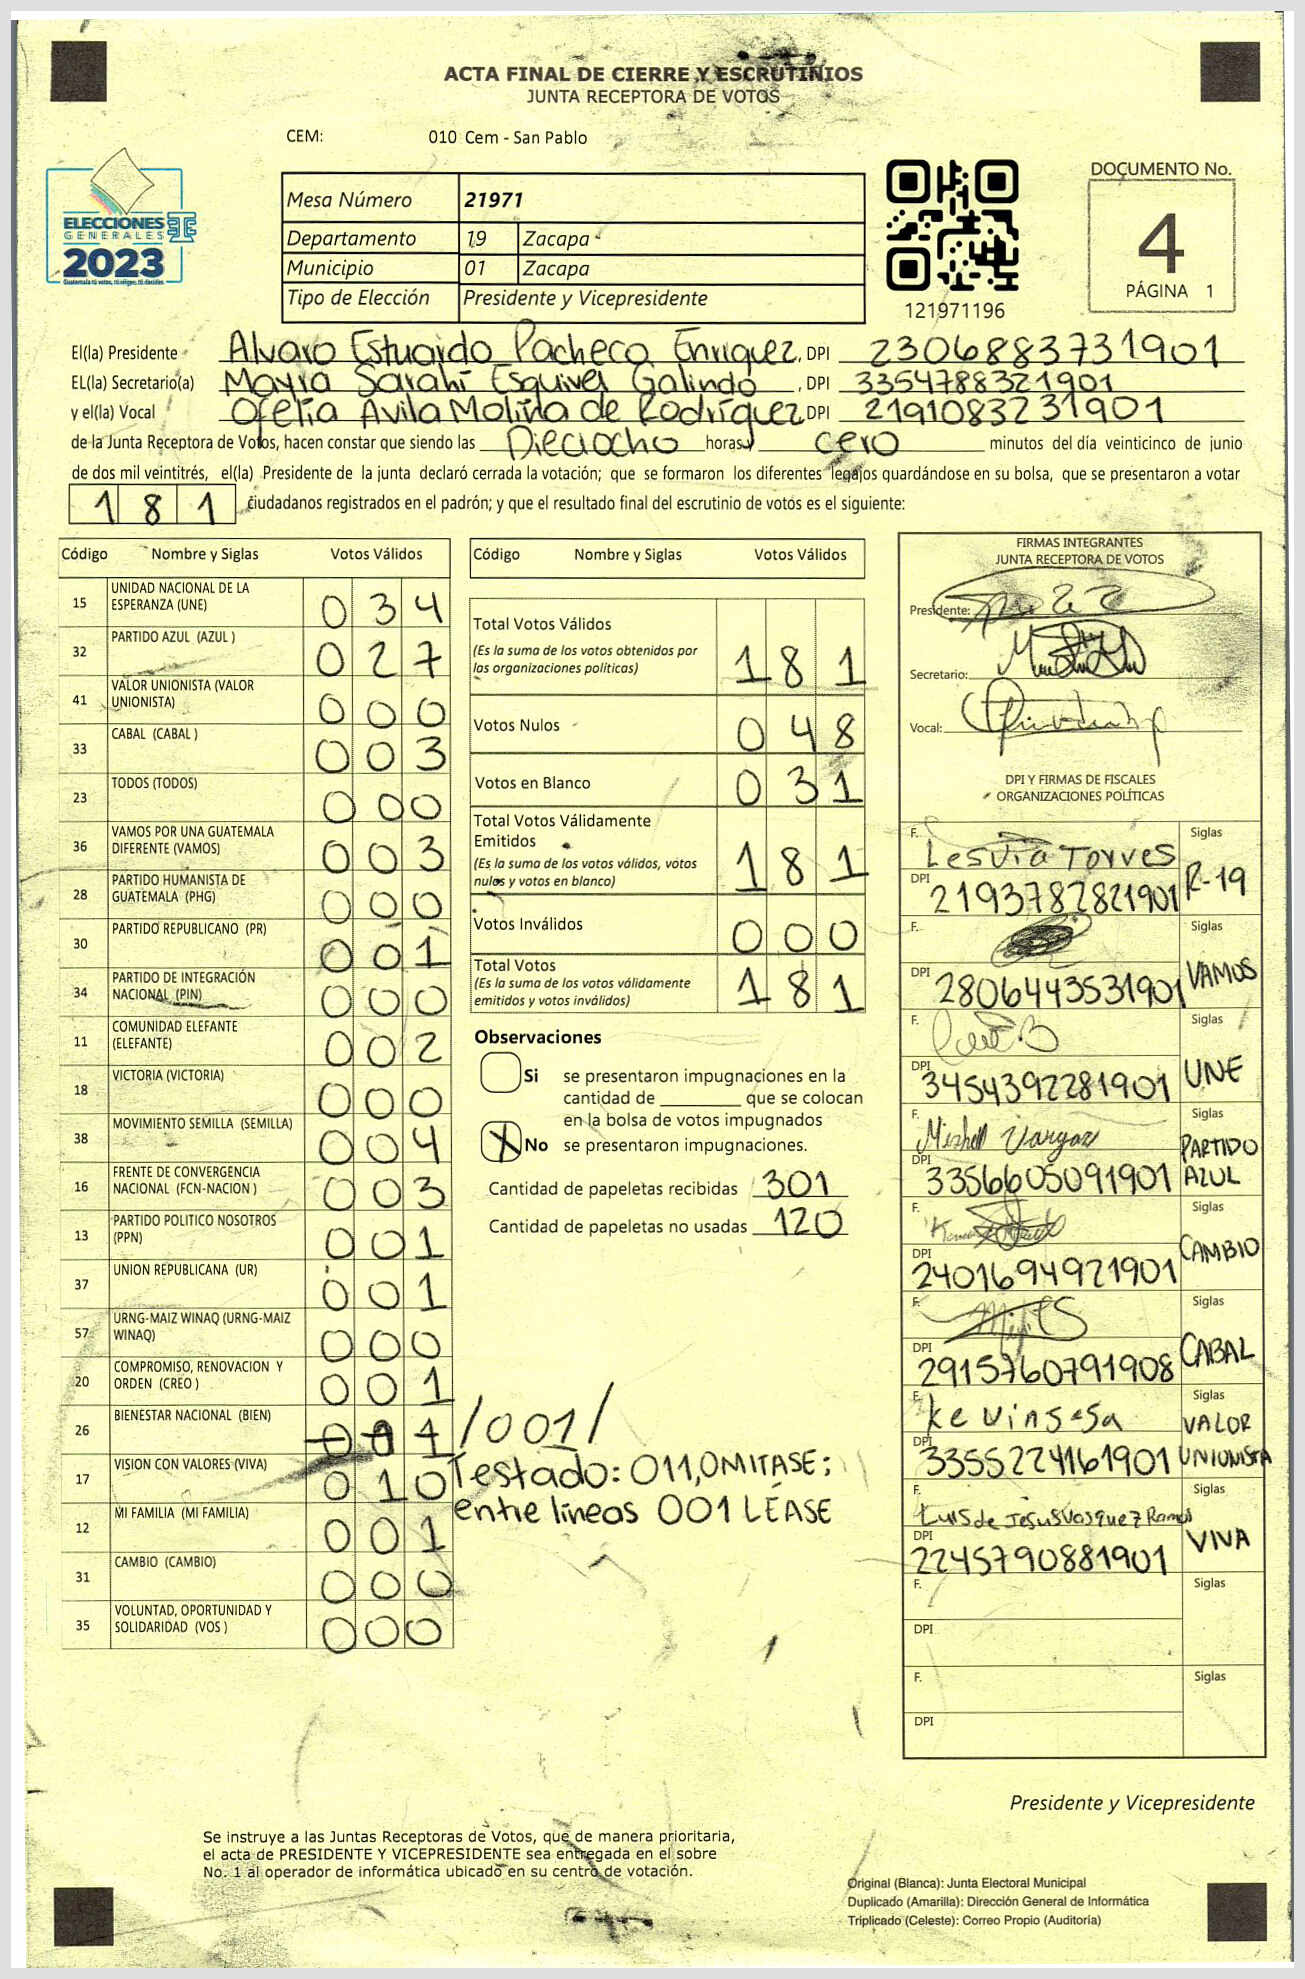 ACTA FINAL DE CIERRE Y ESCRUTINIOS
JUNTA RECEPTORA DE VOTOS
CEM: 010 Cem - San Pablo
ELECCIONES
GENERALES
2023
Guatemala tú votas, tú eliges, tú decides
Mesa Número 21971
Departamento 19 Zacapa
Municipio 01 Zacapa
Tipo de Elección Presidente y Vicepresidente
121971196
DOCUMENTO No.
4
PÁGINA 1
El(la) Presidente Alvaro Estuardo Pacheco Enriquez, DPI 2306883731901
EL(la) Secretario(a) Mayra Sarahí Esquivel Galindo, DPI 3354788321901
y el(la) Vocal Ofelia Avila Molina de Rodríguez, DPI 2191083231901
de la Junta Receptora de Votos, hacen constar que siendo las Dieciocho horas y cero minutos del día veinticinco de junio
de dos mil veintitrés, el(la) Presidente de la junta declaró cerrada la votación; que se formaron los diferentes legajos guardándose en su bolsa, que se presentaron a votar
181 ciudadanos registrados en el padrón; y que el resultado final del escrutinio de votos es el siguiente:
Código Nombre y Siglas Votos Válidos
15 UNIDAD NACIONAL DE LA ESPERANZA (UNE) 034
32 PARTIDO AZUL (AZUL ) 027
41 VALOR UNIONISTA (VALOR UNIONISTA) 000
33 CABAL (CABAL ) 003
23 TODOS (TODOS) 000
36 VAMOS POR UNA GUATEMALA DIFERENTE (VAMOS) 003
28 PARTIDO HUMANISTA DE GUATEMALA (PHG) 000
30 PARTIDO REPUBLICANO (PR) 001
34 PARTIDO DE INTEGRACIÓN NACIONAL (PIN) 000
11 COMUNIDAD ELEFANTE (ELEFANTE) 002
18 VICTORIA (VICTORIA) 000
38 MOVIMIENTO SEMILLA (SEMILLA) 004
16 FRENTE DE CONVERGENCIA NACIONAL (FCN-NACION ) 003
13 PARTIDO POLITICO NOSOTROS (PPN) 001
37 UNION REPUBLICANA (UR) 001
57 URNG-MAIZ WINAQ (URNG-MAIZ WINAQ) 000
20 COMPROMISO, RENOVACION Y ORDEN (CREO ) 001
26 BIENESTAR NACIONAL (BIEN) /001/
17 VISION CON VALORES (VIVA) 010
12 MI FAMILIA (MI FAMILIA) 001
31 CAMBIO (CAMBIO) 000
35 VOLUNTAD, OPORTUNIDAD Y SOLIDARIDAD (VOS ) 000
Testado: 011, OMITASE;
entre líneas 001 LÉASE
Código Nombre y Siglas Votos Válidos
Total Votos Válidos 181
(Es la suma de los votos obtenidos por
las organizaciones políticas)
Votos Nulos 048
Votos en Blanco 031
Total Votos Válidamente
Emitidos 181
(Es la suma de los votos válidos, votos
nulos y votos en blanco)
Votos Inválidos 000
Total Votos 181
(Es la suma de los votos válidamente
emitidos y votos inválidos)
Observaciones
Si se presentaron impugnaciones en la
cantidad de ________ que se colocan
en la bolsa de votos impugnados
X No se presentaron impugnaciones.
Cantidad de papeletas recibidas 301
Cantidad de papeletas no usadas 120
FIRMAS INTEGRANTES
JUNTA RECEPTORA DE VOTOS
Presidente:
Secretario:
Vocal:
DPI Y FIRMAS DE FISCALES
ORGANIZACIONES POLÍTICAS
F. Lesvia Torres Siglas
DPI 2193782821901 R-19
F. Siglas
DPI 2806443531901 VAMOS
F. Siglas
DPI 3454392281901 UNE
F. Mishell Vargas Siglas
DPI 3356605091901 PARTIDO AZUL
F. Siglas
DPI 2401694921901 CAMBIO
F. Siglas
DPI 2915760791908 CABAL
F. Kevin Sosa Siglas
DPI 3355224161901 VALOR UNIONISTA
F. Luis de Jesus Vasquez Ramos Siglas
DPI 2245790881901 VIVA
F. Siglas
DPI
F. Siglas
DPI
Presidente y Vicepresidente
Se instruye a las Juntas Receptoras de Votos, que de manera prioritaria,
el acta de PRESIDENTE Y VICEPRESIDENTE sea entregada en el sobre
No. 1 al operador de informática ubicado en su centro de votación.
Original (Blanca): Junta Electoral Municipal
Duplicado (Amarilla): Dirección General de Informática
Triplicado (Celeste): Correo Propio (Auditoría)